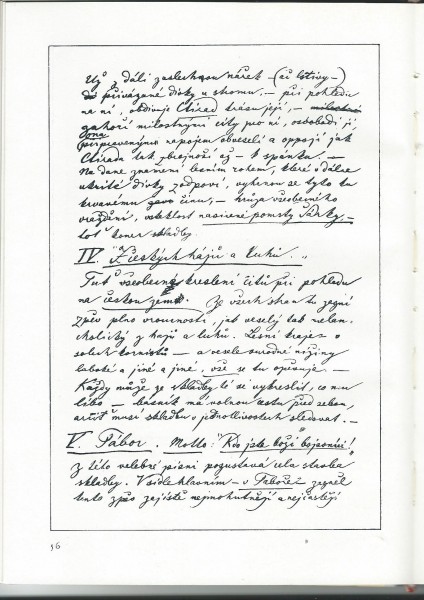 Už z dáli zaslechnou nářek — (ač lstivý —)
přivázané dívky u stromu. — při pohledu
na ni, obdivuje Ctirad krásu její, —
zahoří milostnými city pro ni, osvobodí ji,
ona připraveným nápojem obveselí a oppojí jak
Ctirada tak zbrojnoší až — k spánku. —
Na dané znamení lesním rohem, které v dálce
ukrité dívky zodpoví, vyhrnou se tyto ku
krvavému činu, — hrůza všeobecného
vraždění, vzteklost nasicené pomsty Šárky, —
toť konec skladby.
IV. "Z českých hájů a luhů."
Tuť všeobecné kreslení citů při pohledu
na českou zemi. Ze všech stran tu zazní
zpěv plno vroucnosti, jak veselý tak melan-
cholický z hájů a luhů. Lesní kraje —
v solech kornistů — a veselé ourodné nížiny
labské a jiné a jiné, vše se tu opěvuje. —
Každý může ze skladby té si vykreslit, co mu
libo — básník má volnou cestu před sebou,
artiť musí skladbu v jednotlivostech sledovat. —
V. Tábor. Motto: "Kdo jste boží bojovníci!"
Z této velebné písni pozustává celá stavba
skladby. V sídle hlavním — v Táboře zazněl
tento zpěv zajisté nejmohutněji a nejčastěji
56